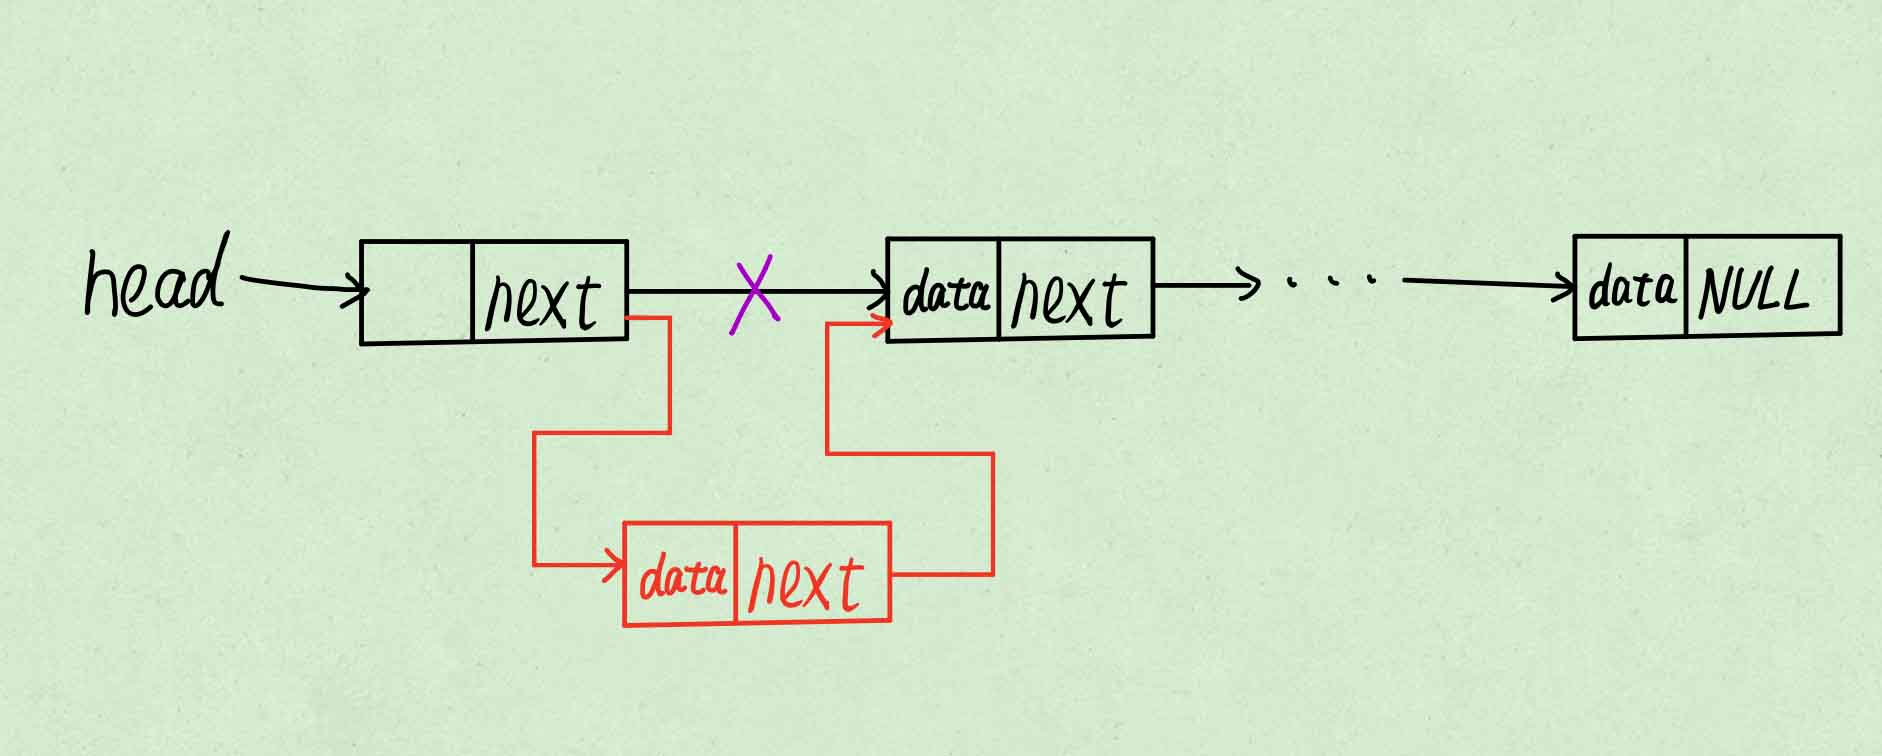 head
next
data next
data NULL
data next